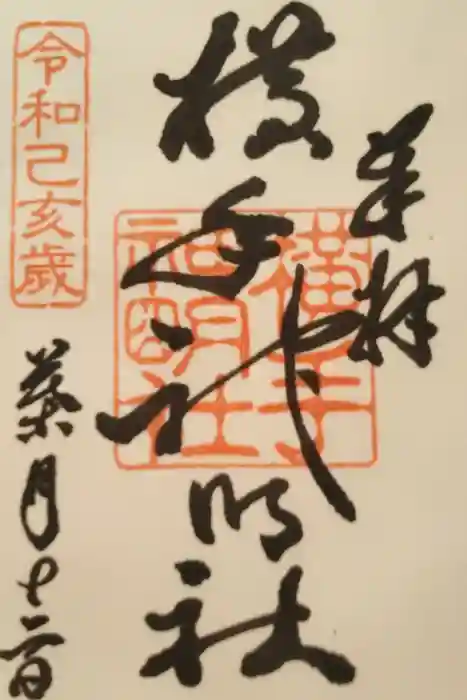 奉拝
横手神明社
横手
神明社
令和己亥歳
葉月十二日